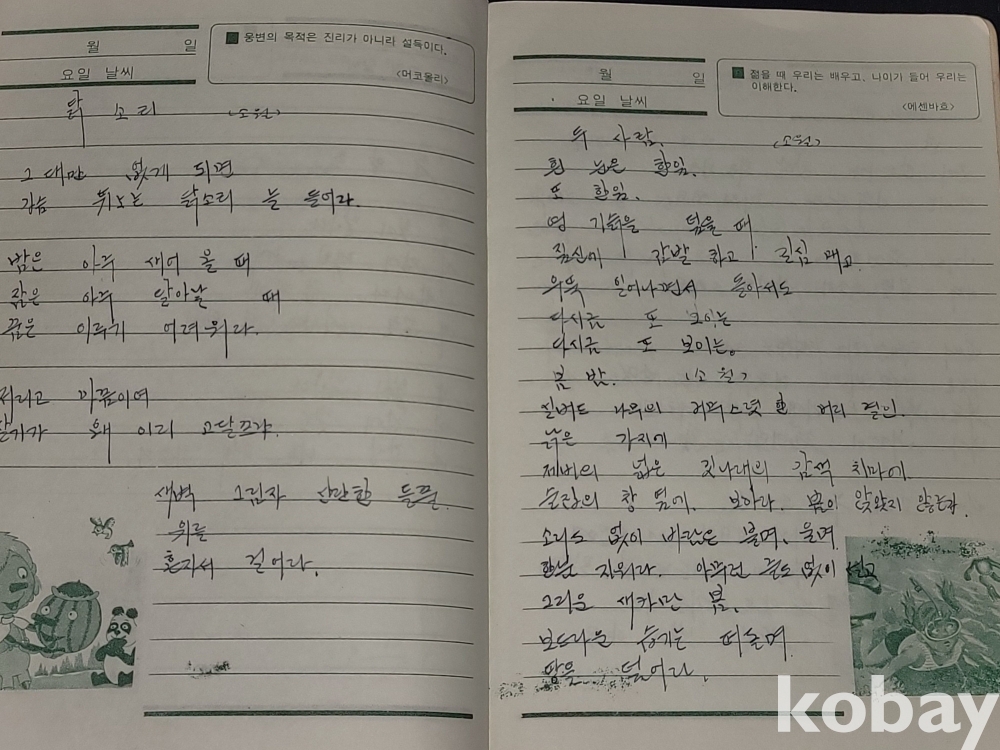 월 일
요일 날씨
웅변의 목적은 진리가 아니라 설득이다.
<머코올리>
닭 소리 <소월>
그대만 없게 되면
가슴 뛰노는 닭소리 늘 들어라.
밤은 아주 새어 올 때
잠은 아주 달아날 때
꿈은 이루기 어려워라.
저리고 아픔이여
살기가 왜 이리 고달프냐.
새벽 그림자 산란한 들풀
위를
혼자서 걸어라.
월 일
요일 날씨
젊을 때 우리는 배우고, 나이가 들어 우리는
이해한다.
<에센바흐>
두 사람. <소월>
흰 눈은 한잎.
또 한잎.
영 기슭을 덮을 때.
짚신에 감발 하고 길심 매고
우뚝 일어나면서 돌아서도
다시금 또 보이는
다시금 또 보이는.
봄 밤. <소월>
실버드 나무의 거무스렷한 머리 결인.
낡은 가지에
제비의 넓은 깃나래의 감색 치마에
술집의 창 옆에. 보아라. 봄이 앉았지 않는가.
소리도 없이 바람은 불며, 울며
한숨 지워라. 아무런 줄도 없이 섧고
그리운 새카만 봄.
보드라운 습기는 떠돌며
땅을 덮어라.
kobay